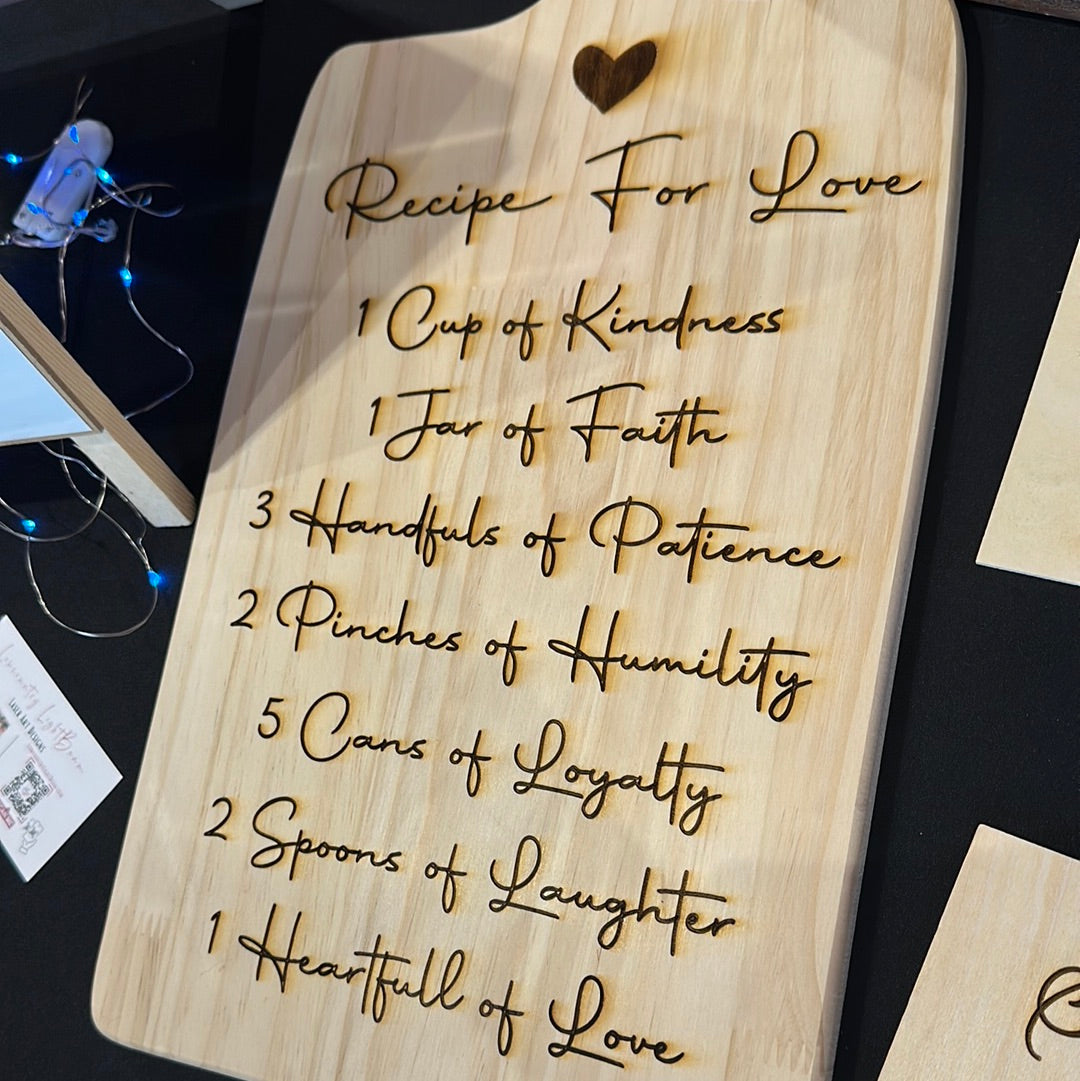 Recipe For Love
1 Cup of Kindness
1 Jar of Faith
3 Handfuls of Patience
2 Pinches of Humility
5 Cans of Loyalty
2 Spoons of Laughter
1 Heartfull of Love
LightBeam
Laser Art Designs